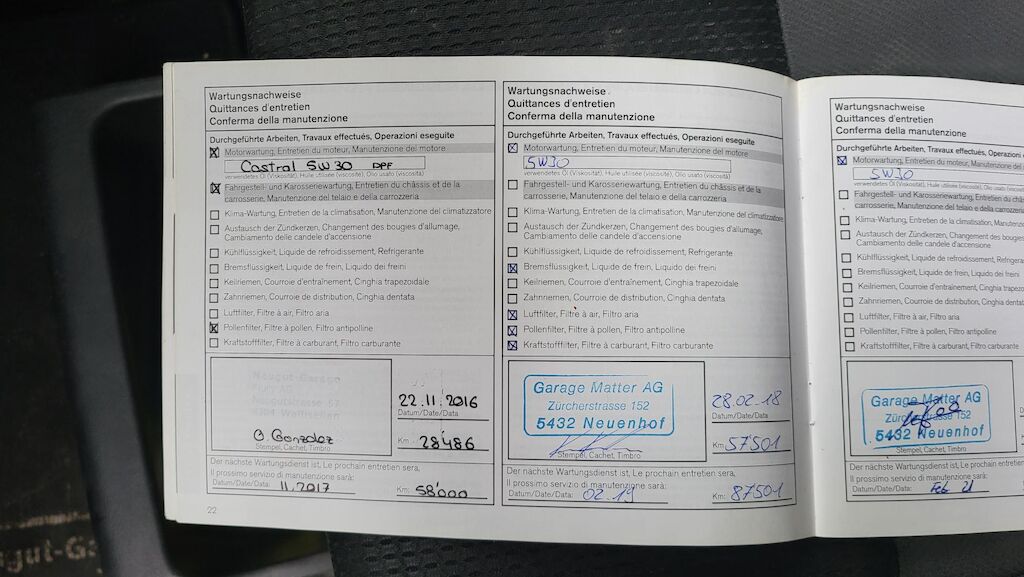 Wartungsnachweise
Quittances d'entretien
Conferma della manutenzione
Durchgeführte Arbeiten, Travaux effectués, Operazioni eseguite
Motorwartung, Entretien du moteur, Manutenzione del motore
Castral 5W30 DPF
verwendetes Öl (Viskosität), Huile utilisée (viscosité), Olio usato (viscosità)
Fahrgestell- und Karosseriewartung, Entretien du châssis et de la
carrosserie, Manutenzione del telaio e della carrozzeria
Klima-Wartung, Entretien de la climatisation, Manutenzione del climatizzatore
Austausch der Zündkerzen, Changement des bougies d'allumage,
Cambiamento delle candele d'accensione
Kühlflüssigkeit, Liquide de refroidissement, Refrigerante
Bremsflüssigkeit, Liquide de frein, Liquido dei freini
Keilriemen, Courroie d'entraînement, Cinghia trapezoidale
Zahnriemen, Courroie de distribution, Cinghia dentata
Luftfilter, Filtre à air, Filtro aria
Pollenfilter, Filtre à pollen, Filtro antipolline
Kraftstofffilter, Filtre à carburant, Filtro carburante
Neugut-Garage
Neugutstrasse 57
8304 Wallisellen
O. Gonzalez
Stempel, Cachet, Timbro
22.11.2016
Datum/Date/Data
Km: 28'486
Der nächste Wartungsdienst ist, Le prochain entretien sera,
Il prossimo servizio di manutenzione sarà:
Datum/Date/Data: 11.2017 Km: 58'000
22
Wartungsnachweise
Quittances d'entretien
Conferma della manutenzione
Durchgeführte Arbeiten, Travaux effectués, Operazioni eseguite
Motorwartung, Entretien du moteur, Manutenzione del motore
5W30
verwendetes Öl (Viskosität), Huile utilisée (viscosité), Olio usato (viscosità)
Fahrgestell- und Karosseriewartung, Entretien du châssis et de la
carrosserie, Manutenzione del telaio e della carrozzeria
Klima-Wartung, Entretien de la climatisation, Manutenzione del climatizzatore
Austausch der Zündkerzen, Changement des bougies d'allumage,
Cambiamento delle candele d'accensione
Kühlflüssigkeit, Liquide de refroidissement, Refrigerante
Bremsflüssigkeit, Liquide de frein, Liquido dei freini
Keilriemen, Courroie d'entraînement, Cinghia trapezoidale
Zahnriemen, Courroie de distribution, Cinghia dentata
Luftfilter, Filtre à air, Filtro aria
Pollenfilter, Filtre à pollen, Filtro antipolline
Kraftstofffilter, Filtre à carburant, Filtro carburante
Garage Matter AG
Zürcherstrasse 152
5432 Neuenhof
Stempel, Cachet, Timbro
28.02.18
Datum/Date/Data
Km: 57501
Der nächste Wartungsdienst ist, Le prochain entretien sera,
Il prossimo servizio di manutenzione sarà:
Datum/Date/Data: 02.19 Km: 87501
Wartungsnachweise
Quittances d'entretien
Conferma della manutenzione
Durchgeführte Arbeiten, Travaux effectués, Operazioni
Motorwartung, Entretien du moteur, Manutenzione del
5W30
verwendetes Öl (Viskosität), Huile utilisée (viscosité), Olio usato
Fahrgestell- und Karosseriewartung, Entretien du
carrosserie, Manutenzione del telaio e della carrozzeria
Klima-Wartung, Entretien de la climatisation, Manutenzione
Austausch der Zündkerzen, Changement des bougies
Cambiamento delle candele d'accensione
Kühlflüssigkeit, Liquide de refroidissement,
Bremsflüssigkeit, Liquide de frein, Liquido dei freini
Keilriemen, Courroie d'entraînement, Cinghia
Zahnriemen, Courroie de distribution, Cinghia dentata
Luftfilter, Filtre à air, Filtro aria
Pollenfilter, Filtre à pollen, Filtro antipolline
Kraftstofffilter, Filtre à carburant, Filtro carburante
Garage Matter AG
Zürcherstrasse 152
5432 Neuenhof
Stempel, Cachet, Timbro
Der nächste Wartungsdienst ist, Le prochain entretien
Il prossimo servizio di manutenzione sarà:
Datum/Date/Data: Feb 21